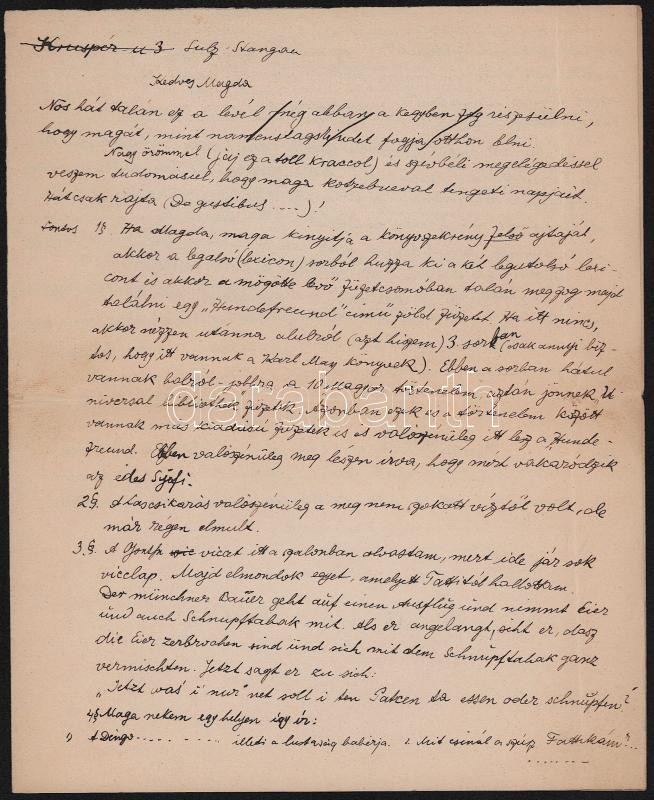 Kruspér u 3 Sulz-Stangau
Kedves Magda
Nos hát talán ez a levél még abban a kegyben fog részesülni,
hogy magát, mint fogja otthon lelni.
Nagy örömmel (jaj ez a toll kraccol) és szívbéli megelégedéssel
veszem tudomásul, hogy maga kotzebueval tengeti napjait.
Hát csak rajta (De gustibus ....)!
Fontos 1§. Ha Magda, maga kinyitja a könyvszekrény felső ajtaját,
akkor a legalsó (lexicon) sorból huzza ki a két legutolsó lexi-
cont és akkor a mögötte levő füzetcsomóban talán meg fog majd
találni egy „Hundefreund" című zöld füzetet. Ha itt nincs,
akkor nézzen utánna alulról (azt hiszem) 3. sorban (csak annyi biz-
tos, hogy itt vannak a Karl May könyvek). Ebben a sorban hátul
vannak balról-jobbra a 10 Magyar történelem, aztán jönnek U-
niversal bibliothek füzetek. Azonban ezek és a történelem között
vannak más kiadású füzetek is és valószinüleg itt lesz a „Hunde-
freund. Ebben valószinüleg meg leszen írva, hogy mért vakaródzik
az édes
2§. A hascsikarás valószinüleg a meg nem szokott víztől volt, de
már régen elmult.
3.§. A viccet itt a szalonban olvastam, mert ide jár sok
vicclap. Majd elmondok egyet, amelyet Tattitól hallottam.
Der münchner Bauer geht auf einen Ausflug und nimmt Eier
und auch Schnupftabak mit. Als er angelangt, sieht er, dasz
die Eier zerbrochen sind und sich mit dem Schnupftabak ganz
vermischten. Jetzt sagt er zu sich:
„Jetzt was i nur net soll i ten Patzen ta essen oder schnupfen?"
4§ Maga nekem egy helyen így ír:
1) A Dingo .......... illeti a lustaság babérja. 2. Mit csinál a szép Fattikám?..
........
darabanth